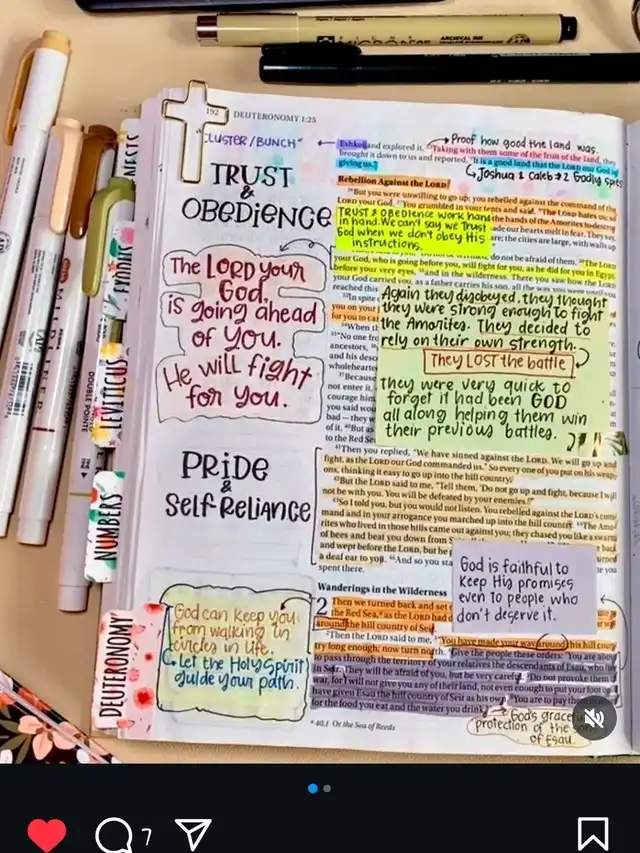 MICRON
ARCHIVAL INK
192 DEUTERONOMY 1:25
"CLUSTER/BUNCH"
Eshkol and explored it.
Taking with them some of the fruit of the land, they
brought it down to us and reported, "It is a good land that the LORD our God is
giving us."
Proof how good the land was.
Joshua & Caleb
TRUST
&
OBEDIENCE
Rebellion Against the LORD
But you were unwilling to go up; you rebelled against the command of the
LORD your God. You grumbled in your tents and said, "The LORD hates us;
TRUST & OBEDIENCE work hand
in hand. We can't say we Trust
God when we don't obey His
instructions.
the hands of the Amorites to destroy
made our hearts melt in fear. They say,
are; the cities are large, with walls up
do not be afraid of them. The LORD
your God, who is going before you, will fight for you, as he did for you in Egypt,
before your very eyes, and in the wilderness. There you saw how the LORD
your God carried you, as a father carries his son, all the way you went until you
reached this
The LORD your
God,
is going ahead
of you.
He will fight
for you.
In spite
you on your
for you to ca
When th
No one fro
ancestors,
and his desc
wholehearte
Because
not enter it.
courage him
you said wou
bad—they w
of it. But as
to the Red Sea
Again they disobeyed, they thought
they were strong enough to fight
the Amorites. They decided to
rely on their own strength.
They LOST the battle
They were very quick to
forget it had been GOD
all along helping them win
their previous battles.
PRIDE
&
Self RELIANCE
Then you replied, "We have sinned against the LORD. We will go up and
fight, as the LORD our God commanded us." So every one of you put on his weap
ons, thinking it easy to go up into the hill country.
But the LORD said to me, "Tell them, 'Do not go up and fight, because I will
not be with you. You will be defeated by your enemies.'"
So I told you, but you would not listen. You rebelled against the LORD's com
mand and in your arrogance you marched up into the hill country. The Amo
rites who lived in those hills came out against you; they chased you like a swarm
of bees and beat you down from Seir
and wept before the LORD, but he
a deaf ear to you. And so you sta
spent there.
God is faithful to
keep His promises
even to people who
don't deserve it.
Wanderings in the Wilderness
2 Then we turned back and set
the Red Sea, as the LORD had
around the hill country of Seir.
Then the LORD said to me, "You have made your way around this hill coun
try long enough; now turn north. Give the people these orders: 'You are about
to pass through the territory of your relatives the descendants of Esau, who live
in Seir. They will be afraid of you, but be very careful. Do not provoke them
war, for I will not give you any of their land, not even enough to put your foot on
have given Esau the hill country of Seir as his own. You are to pay them
for the food you eat and the water you drink
God can keep you
from walking in
circles in life.
Let the Holy Spirit
guide your path.
40,1 Or the Sea of Reeds
God's grace
protection of the
of Esau.
EXODUS
LEVITICUS
NUMBERS
DEUTERONOMY
MIDLINER
DOUBLE POINTE
7